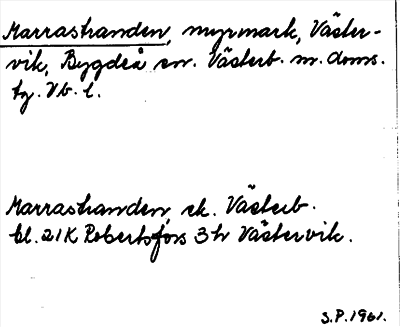 Marrastranden, myrmark, Väster-
vik, Bygdeå sn. Västerb. m. doms.
tg. Vb. l.
Marrastranden, ek. Västerb.
bl. 21K Robertsfors 3 h Västervik.
S.P. 1961.